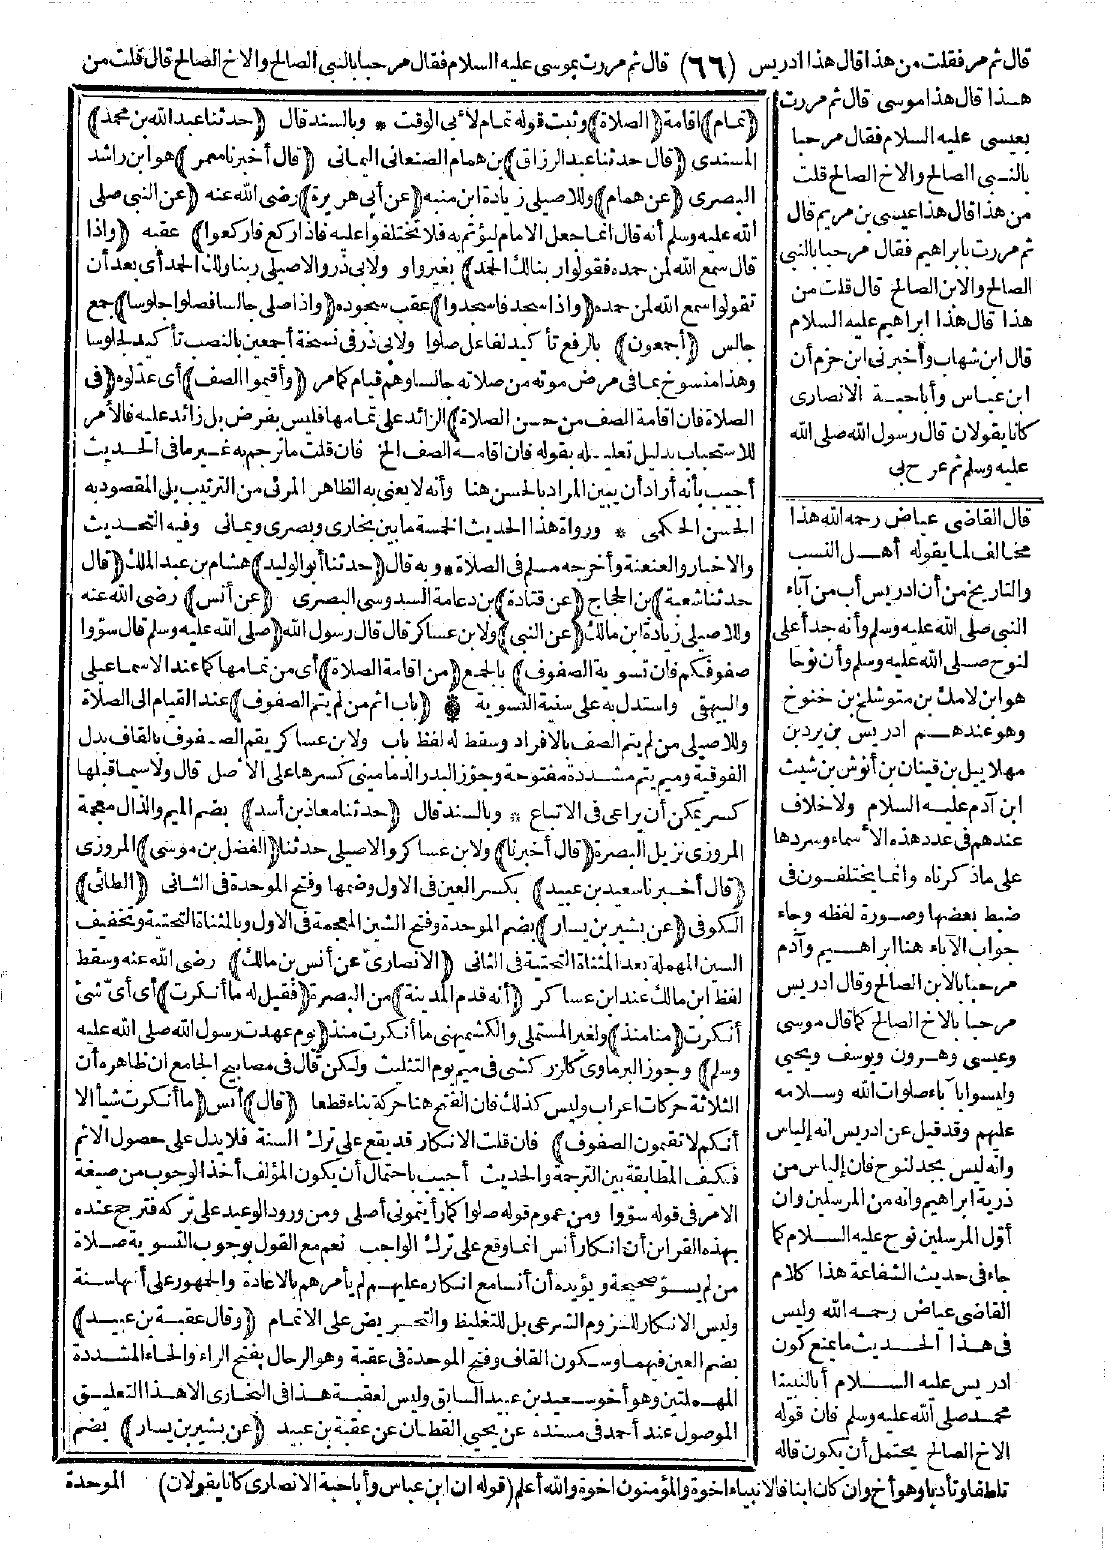 قال ثم مر فقلت من هذا قال هذا ادريس (٦٦) قال ثم مررت بموسى عليه السلام فقال مرحبا بالنبي الصالح والاخ الصالح قال قلت من
هذا قال هذا موسى قال ثم مررت
بعيسى عليه السلام فقال مرحبا
بالنبي الصالح والاخ الصالح قلت
من هذا قال هذا عيسى بن مريم قال
ثم مررت بابراهيم فقال مرحبا بالنبي
الصالح والابن الصالح قال قلت من
هذا قال هذا ابراهيم عليه السلام
قال ابن شهاب وأخبرنى ابن حزم أن
ابن عباس وأبا حبة الانصارى
كانا يقولان قال رسول الله صلى الله
عليه وسلم ثم عرج بى
قال القاضى عياض رحمه الله هذا
مخالف لما يقوله أهل النسب
والتاريخ من أن ادريس أب من آباء
النبى صلى الله عليه وسلم وأنه جد أعلى
لنوح صلى الله عليه وسلم وأن نوحا
هو ابن لامك بن متوشلخ بن خنوخ
وهو عندهم ادريس بن يرد بن
مهلاييل بن قينان بن أنوش بن شيث
ابن آدم عليه السلام ولا خلاف
عندهم فى عدد هذه الأسماء وسردها
على ماذكرناه وانما يختلفون فى
ضبط بعضها وصورة لفظه وجاء
جواب الآباء هنا ابراهيم وآدم
مرحبا بالابن الصالح وقال ادريس
مرحبا بالاخ الصالح كما قال موسى
وعيسى وهرون ويوسف ويحيى
وليسوا بآباء صلوات الله وسلامه
عليهم وقد قيل عن ادريس انه إلياس
وانه ليس بجد لنوح فان إلياس من
ذرية ابراهيم وانه من المرسلين وان
أول المرسلين نوح عليه السلام كما
جاء فى حديث الشفاعة هذا كلام
القاضى عياض رحمه الله وليس
فى هذا الحديث ما يمنع كون
ادريس عليه السلام أبا لنبينا
محمد صلى الله عليه وسلم فان قوله
الاخ الصالح يحتمل أن يكون قاله
تلطفا وتأدبا وهو أخ وان كان ابنا فالانبياء اخوة والمؤمنون اخوة والله أعلم (قوله ان ابن عباس وأبا حبة الانصارى كانا يقولان)
(تمام) اقامة (الصلاة) وثبت قوله تمام لأبى الوقت * وبالسند قال (حدثنا عبد الله بن محمد)
المسندى (قال حدثنا عبد الرزاق) بن همام الصنعانى اليمانى (قال أخبرنا معمر) هو ابن راشد
البصرى (عن همام) وللاصيلى زيادة ابن منبه (عن أبى هريرة) رضى الله عنه (عن النبى صلى
الله عليه وسلم أنه قال انما جعل الامام ليؤتم به فلا تختلفوا عليه فاذا ركع فاركعوا) عقبه (واذا
قال سمع الله لمن حمده فقولوا ربنا لك الحمد) بغير واو ولابى ذر والاصيلى ربنا ولك الحمد أى بعد أن
تقولوا سمع الله لمن حمده (واذا سجد فاسجدوا) عقب سجوده (واذا صلى جالسا فصلوا جلوسا) جمع
جالس (أجمعون) بالرفع تأكيد لفاعل صلوا ولابى ذر فى نسخة أجمعين بالنصب تأكيد لجلوسا
وهذا منسوخ بما فى مرض موته من صلاته جالسا وهم قيام كما مر (وأقيموا الصف) أى عدلوه (فى
الصلاة فان اقامة الصف من حسن الصلاة) الزائد على تمامها فليس بفرض بل زائد عليه فالأمر
للاستحباب بدليل تعليله بقوله فان اقامة الصف الخ فان قلت ما ترجم به غير ما فى الحديث
أجيب بأنه أراد أن يبين المراد بالحسن هنا وأنه لا يعنى به الظاهر المرئى من الترتيب بل المقصود به
الحسن الحكمى * ورواة هذا الحديث الخمسة ما بين بخارى وبصرى ويمانى وفيه التحديث
والاخبار والعنعنة وأخرجه مسلم فى الصلاة * وبه قال (حدثنا أبو الوليد) هشام بن عبد الملك (قال
حدثنا شعبة) بن الحجاج (عن قتادة) بن دعامة السدوسى البصرى (عن أنس) رضى الله عنه
وللاصيلى زيادة ابن مالك (عن النبى) ولابن عساكر قال قال رسول الله (صلى الله عليه وسلم قال سووا
صفوفكم فان تسوية الصفوف) بالجمع (من اقامة الصلاة) أى من تمامها كما عند الاسماعيلى
والبيهقى واستدل به على سنية التسوية * (باب اثم من لم يتم الصفوف) عند القيام الى الصلاة
وللاصيلى من لم يتم الصف بالافراد وسقط له لفظ باب ولابن عساكر يقم الصفوف بالقاف بدل
الفوقية وميم يتم مشددة مفتوحة وجوز البدر الدمامينى كسرها على الأصل قال ولا سيما قبلها
كسر يمكن أن يراعى فى الاتباع * وبالسند قال (حدثنا معاذ بن أسد) بضم الميم والذال معجمة
المروزى نزيل البصرة (قال أخبرنا) ولابن عساكر والاصيلى حدثنا (الفضل بن موسى) المروزى
(قال أخبرنا سعيد بن عبيد) بكسر العين فى الاول وضمها وفتح الموحدة فى الثانى (الطائى)
الكوفى (عن بشير بن يسار) بضم الموحدة وفتح الشين المعجمة فى الاول وبالمثناة التحتية وتخفيف
السين المهملة بعد المثناة التحتية فى الثانى (الانصارى عن أنس بن مالك) رضى الله عنه وسقط
لفظ ابن مالك عند ابن عساكر (أنه قدم المدينة) من البصرة (فقيل له ما أنكرت) أى أىّ شئ
أنكرت (منا منذ) ولغير المستملى والكشميهنى ما أنكرت منذ (يوم عهدت رسول الله صلى الله عليه
وسلم) وجوز البرماوى كالزركشى فى ميم يوم التثليث ولكن قال فى مصابيح الجامع ان ظاهره أن
الثلاثة حركات اعراب وليس كذلك فان الفتح هنا حركة بناء قطعا (قال) أنس (ما أنكرت شيأ الا
أنكم لا تقيمون الصفوف) فان قلت الانكار قد يقع على ترك السنة فلا يدل على حصول الاثم
فكيف المطابقة بين الترجمة والحديث أجيب باحتمال أن يكون المؤلف أخذ الوجوب من صيغة
الامر فى قوله سووا ومن عموم قوله صلوا كما رأيتمونى أصلى ومن ورود الوعيد على تركه فترجح عنده
بهذه القرائن أن انكار أنس انما وقع على ترك الواجب نعم مع القول بوجوب التسوية صلاة
من لم يسوّ صحيحة ويؤيده أن أنسا مع انكاره عليهم لم يأمرهم بالاعادة والجمهور على أنها سنة
وليس الانكار للزوم الشرعى بل للتغليظ والتحريض على الاتمام (وقال عقبة بن عبيد)
بضم العين فيهما وسكون القاف وفتح الموحدة فى عقبة وهو الرحال بفتح الراء والحاء المشددة
المهملتين وهو أخو سعيد بن عبيد السابق وليس لعقبة هذا فى البخارى الا هذا التعليق
الموصول عند أحمد فى مسنده عن يحيى القطان عن عقبة بن عبيد (عن بشير بن يسار) بضم
الموحدة